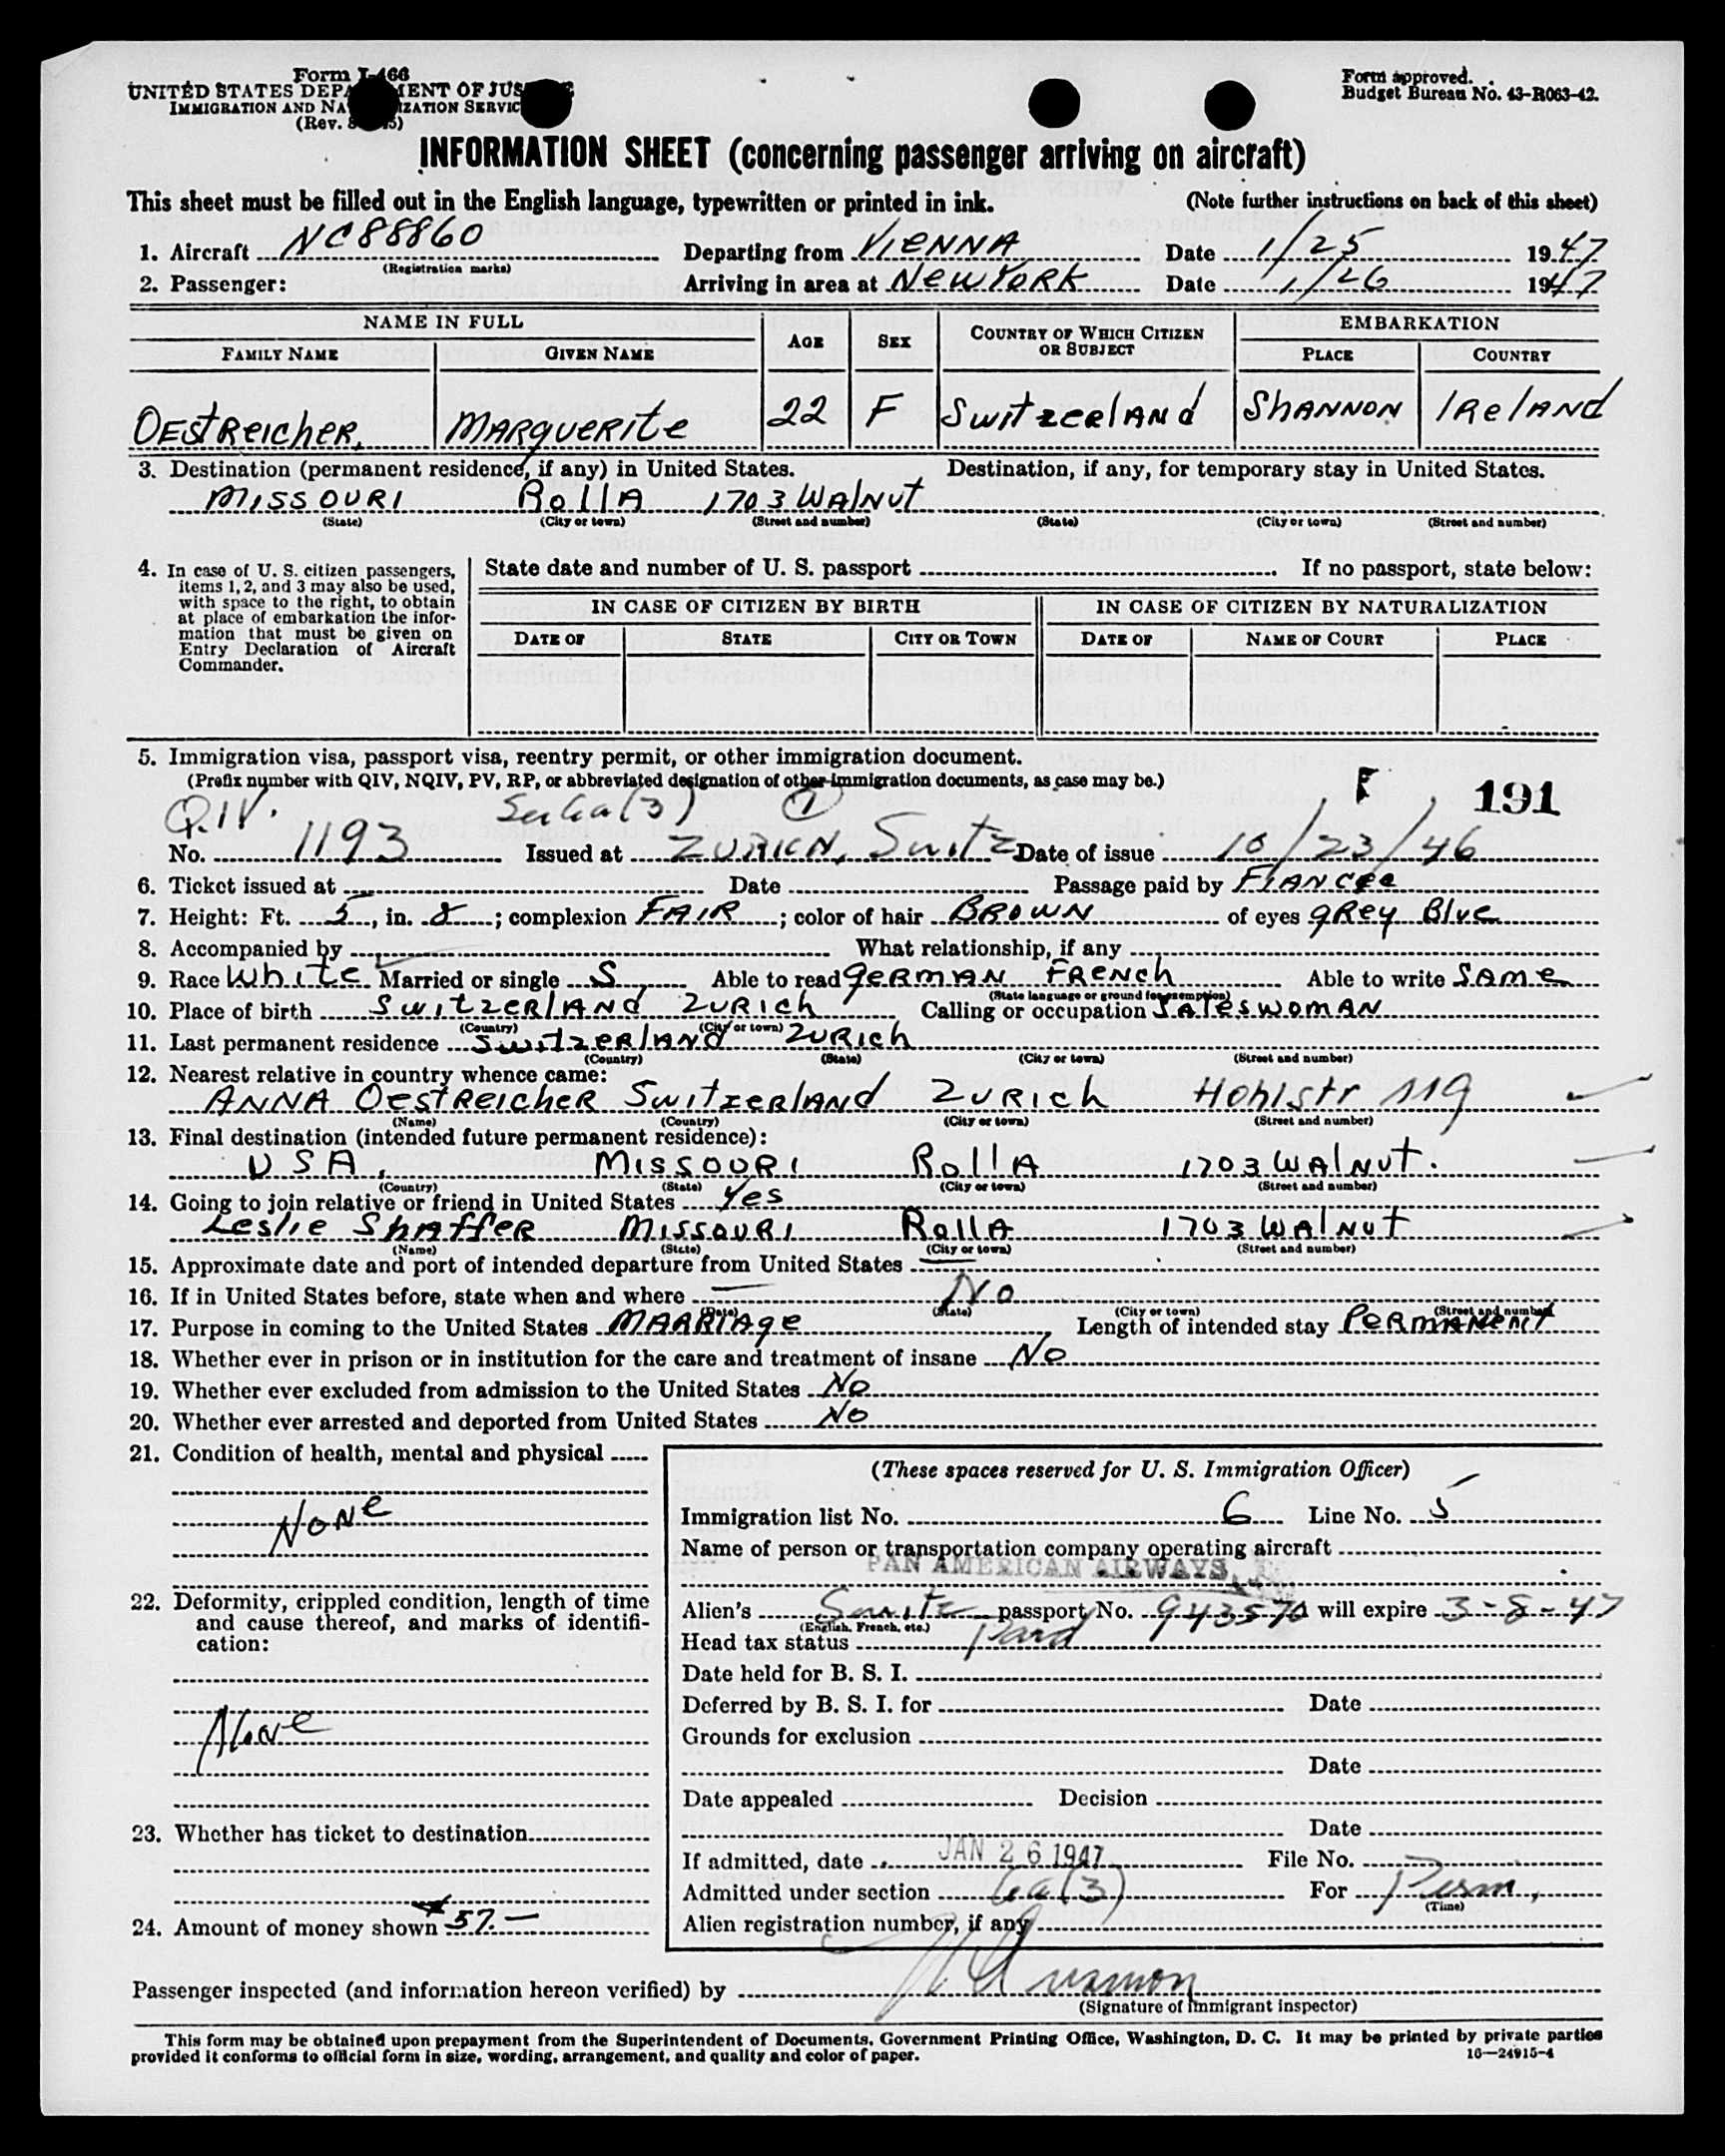 Form I-466
UNITED STATES DEPARTMENT OF JUSTICE
IMMIGRATION AND NATURALIZATION SERVICE
(Rev.
Form approved.
Budget Bureau No. 43-R063-42.
INFORMATION SHEET (concerning passenger arriving on aircraft)
This sheet must be filled out in the English language, typewritten or printed in ink. (Note further instructions on back of this sheet)
1. Aircraft NC88860 Departing from VIENNA Date 1/25 1947
(Registration marks)
2. Passenger: Arriving in area at NEW YORK Date 1/26 1947
NAME IN FULL AGE SEX COUNTRY OF WHICH CITIZEN OR SUBJECT EMBARKATION
FAMILY NAME GIVEN NAME PLACE COUNTRY
OESTREICHER, MARGUERITE 22 F SWITZERLAND SHANNON IRELAND
3. Destination (permanent residence, if any) in United States. Destination, if any, for temporary stay in United States.
MISSOURI ROLLA 1703 WALNUT
(State) (City or town) (Street and number) (State) (City or town) (Street and number)
4. In case of U. S. citizen passengers,
items 1, 2, and 3 may also be used,
with space to the right, to obtain
at place of embarkation the infor-
mation that must be given on
Entry Declaration of Aircraft
Commander.
State date and number of U. S. passport If no passport, state below:
IN CASE OF CITIZEN BY BIRTH IN CASE OF CITIZEN BY NATURALIZATION
DATE OF STATE CITY OR TOWN DATE OF NAME OF COURT PLACE
5. Immigration visa, passport visa, reentry permit, or other immigration document.
(Prefix number with QIV, NQIV, PV, RP, or abbreviated designation of other immigration documents, as case may be.)
F 191
Q.IV. 6a(3) 1
No. 1193 Issued at ZURICH, Switz Date of issue 10/23/46
6. Ticket issued at Date Passage paid by FIANCEE
7. Height: Ft. 5, in. 8; complexion FAIR; color of hair BROWN of eyes GREY BLUE
8. Accompanied by What relationship, if any
9. Race WHITE Married or single S Able to read GERMAN FRENCH Able to write SAME
(State language or ground for exemption)
10. Place of birth SWITZERLAND ZURICH Calling or occupation SALESWOMAN
(Country) (City or town)
11. Last permanent residence SWITZERLAND ZURICH
(Country) (State) (City or town) (Street and number)
12. Nearest relative in country whence came:
ANNA OESTREICHER SWITZERLAND ZURICH Hohlstr 119
(Name) (Country) (City or town) (Street and number)
13. Final destination (intended future permanent residence):
USA, MISSOURI ROLLA 1703 WALNUT.
(Country) (State) (City or town) (Street and number)
14. Going to join relative or friend in United States Yes
LESLIE SHAFFER MISSOURI ROLLA 1703 WALNUT
(Name) (State) (City or town) (Street and number)
15. Approximate date and port of intended departure from United States
16. If in United States before, state when and where No
(Date) (State) (City or town) (Street and number)
17. Purpose in coming to the United States MARRIAGE Length of intended stay PERMANENT
18. Whether ever in prison or in institution for the care and treatment of insane NO
19. Whether ever excluded from admission to the United States NO
20. Whether ever arrested and deported from United States NO
21. Condition of health, mental and physical
NONE
22. Deformity, crippled condition, length of time
and cause thereof, and marks of identifi-
cation:
None
23. Whether has ticket to destination
24. Amount of money shown 57.—
(These spaces reserved for U. S. Immigration Officer)
Immigration list No. 6 Line No. 5
Name of person or transportation company operating aircraft
PAN AMERICAN AIRWAYS,
Alien's Switz passport No. 943570 will expire 3-8-47
(English, French, etc.)
Head tax status Paid
Date held for B. S. I.
Deferred by B. S. I. for Date
Grounds for exclusion
Date
Date appealed Decision
Date
If admitted, date JAN 26 1947 File No.
Admitted under section 6a(3) For Perm,
(Time)
Alien registration number, if any
Passenger inspected (and information hereon verified) by
(Signature of Immigrant inspector)
This form may be obtained upon prepayment from the Superintendent of Documents, Government Printing Office, Washington, D. C. It may be printed by private parties
provided it conforms to official form in size, wording, arrangement, and quality and color of paper. 16—24915-4